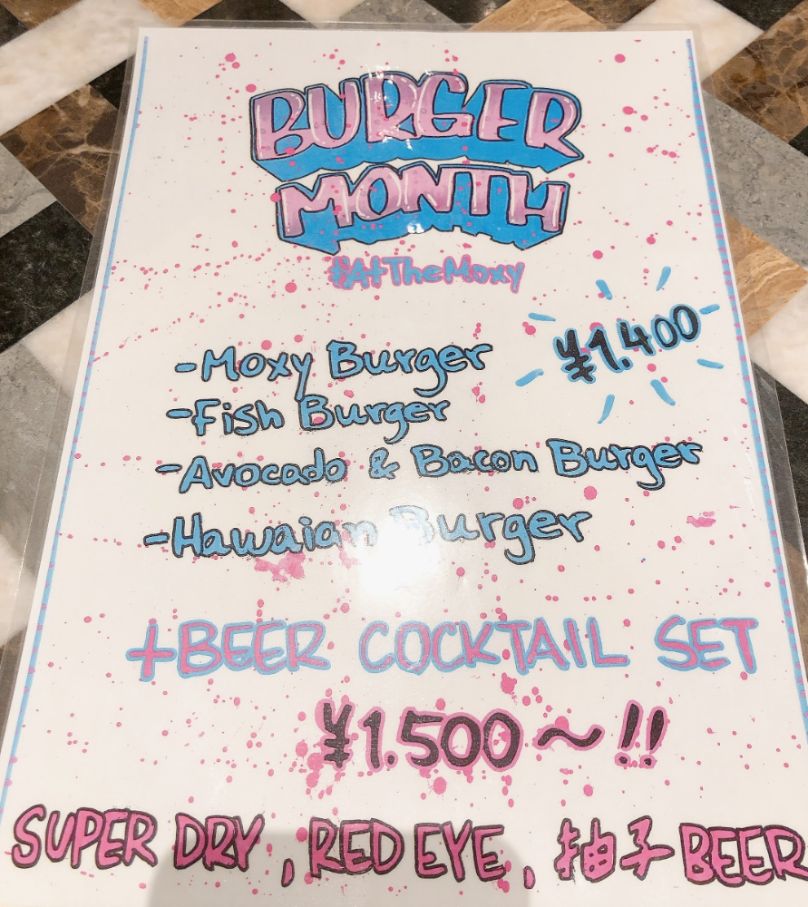 BURGER
MONTH
#AtTheMoxy
¥1.400
-Moxy Burger
-Fish Burger
-Avocado & Bacon Burger
-Hawaian Burger
+BEER COCKTAIL SET
¥1.500~!!
SUPER DRY, RED EYE, 柚子BEER